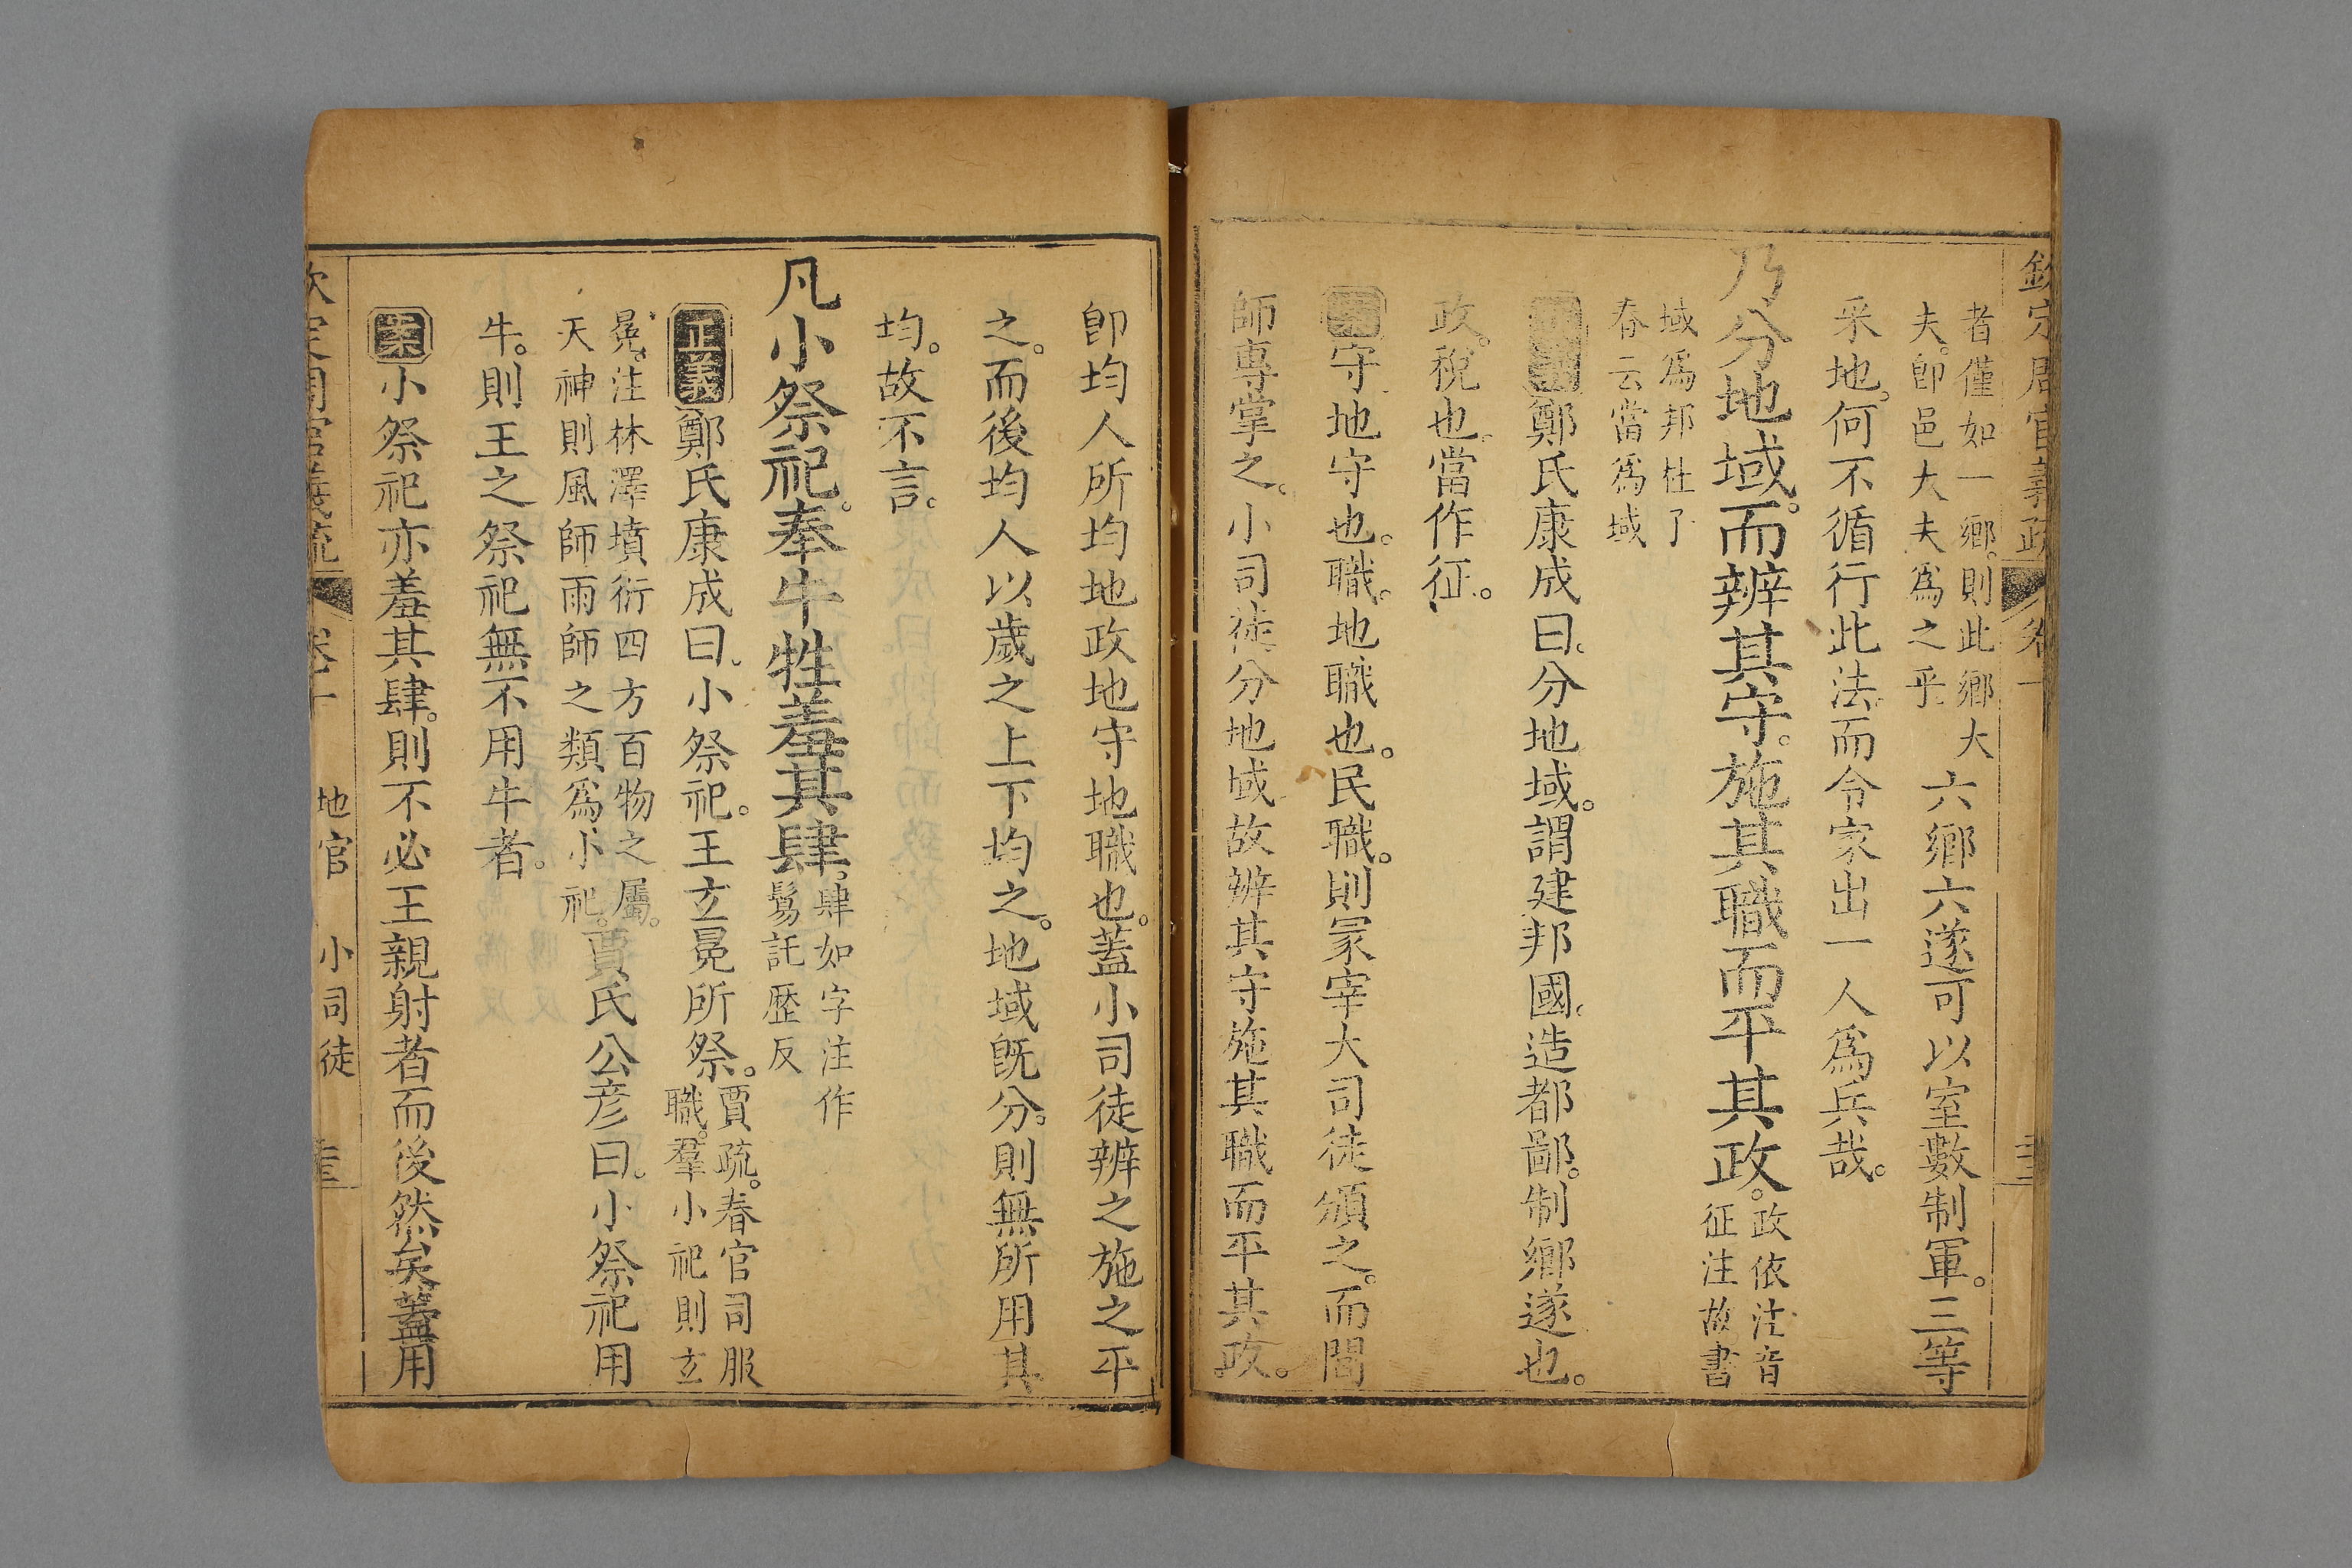 欽定周官義疏 卷十
者僅如一鄉。則此鄉大
夫。卽邑大夫爲之乎
六鄉六遂可以室數制軍。三等
采地。何不循行此法。而令家出一人爲兵哉。
乃分地域。而辨其守。施其職而平其政。
政依注音
征注故書
域爲邦杜子
春云當爲域
正義鄭氏康成曰。分地域。謂建邦國。造都鄙。制鄉遂也。
政。稅也。當作征。
案守。地守也。職。地職也。民職。則冢宰大司徒頒之。而閭
師專掌之。小司徒分地域故辨其守施其職而平其政。
卽均人所均地政地守地職也。蓋小司徒辨之施之平
之。而後均人以歲之上下均之。地域旣分。則無所用其
均。故不言。
凡小祭祀。奉牛牲羞其肆。
肆如字注作
鬄託歷反
正義鄭氏康成曰。小祭祀。王玄冕所祭。
賈疏。春官司服
職。羣小祀則玄
冕。注林澤墳衍四方百物之屬。
天神則風師雨師之類爲小祀。
賈氏公彦曰。小祭祀用
牛。則王之祭祀無不用牛者。
案小祭祀亦羞其肆。則不必王親射者而後然矣蓋用
欽定周官義疏 卷十 地官 小司徒